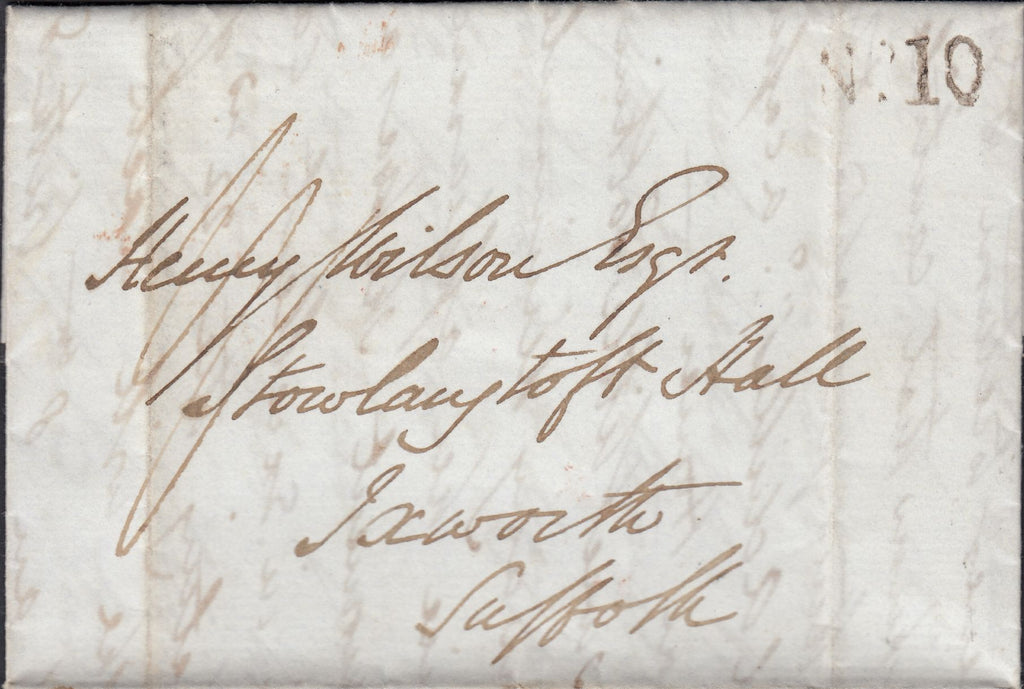 No. 10
Henry Wilson Esqr.
Stowlangtoft Hall
Ixworth
Suffolk